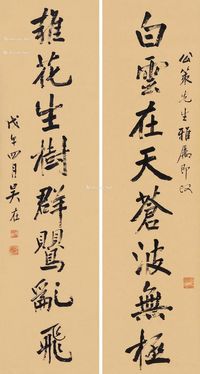 公策先生雅属即政
白雲在天蒼波無極
雜花生樹群鶯亂飛
戊午四月吳在